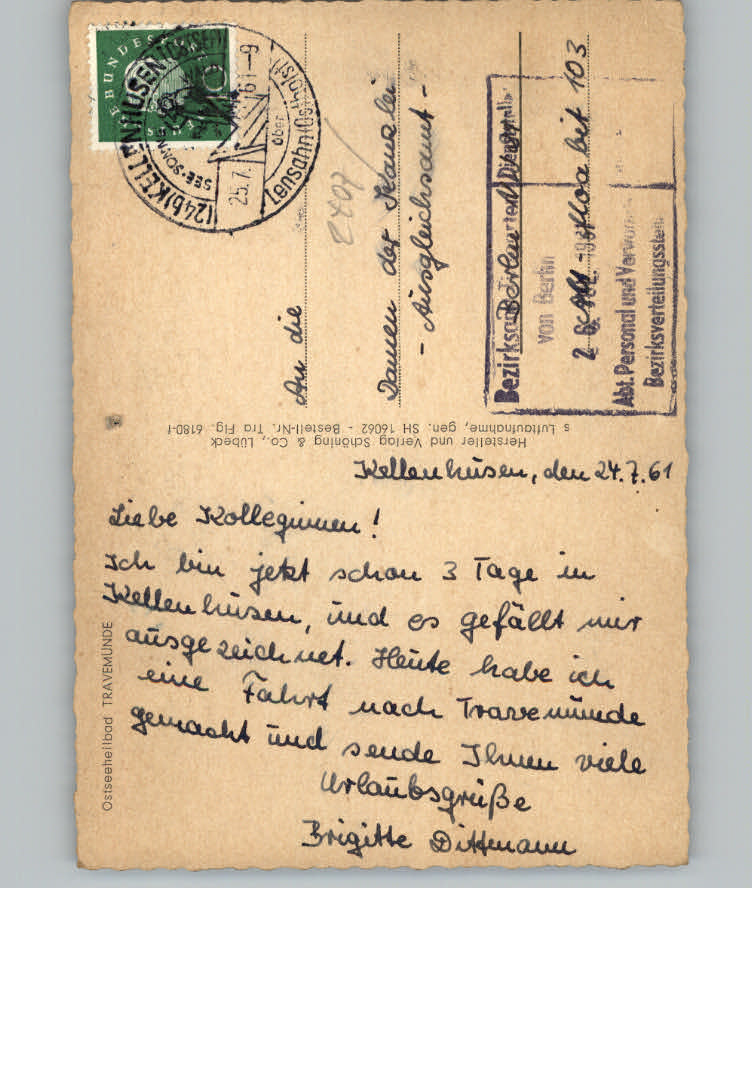 Kellenhusen, den 24.7.61
Liebe Kolleginnen!
Ich bin jetzt schon 3 Tage in
Kellenhusen, und es gefällt mir
ausgezeichnet. Heute habe ich
eine Fahrt nach Travemünde
gemacht und sende Ihnen viele
Urlaubsgrüße
Brigitte Dittmann
Ostseeheilbad TRAVEMÜNDE
Hersteller und Verlag Schöning & Co., Lübeck
s Luftaufnahme, gen. SH 16062 - Bestell-Nr. Tra Flg. 6180-f
An die
Damen der Kanzlei
- Ausgleichsamt -
Berlin
Moabit 103
2407
(24b) KELLENHUSEN (OSTSEE)
über
Lensahn (Ostholst)
25.7.61-9
von Berlin
Abt. Personal und
Bezirksverteilungsstelle